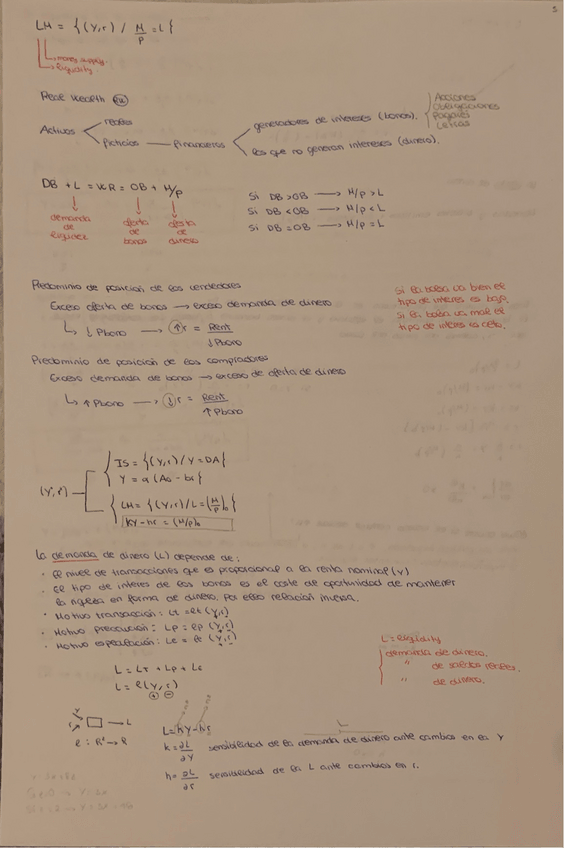 5
LM = {(Y,r) / M/P = L}
money supply
liquidity
Real Wealth
Activos
reales
ficticios — financieros
generadores de intereses (bonos).
los que no generan intereses (dinero).
Acciones
Obligaciones
Pagarés
Letras
DB + L = WR = OB + M/P
demanda de liquidez
oferta de bonos
oferta de dinero
Si DB > OB → M/P > L
Si DB < OB → M/P < L
Si DB = OB → M/P = L
Predominio de posición de los vendedores
Exceso oferta de bonos → exceso demanda de dinero
↳ ↓ Pbono → ↑r = Rent / ↓ Pbono
Si la bolsa va bien el
tipo de interes es bajo,
si la bolsa va mal el
tipo de interes es alto.
Predominio de posición de los compradores
Exceso demanda de bonos → exceso de oferta de dinero
↳ ↑ Pbono → ↓r = Rent / ↑ Pbono
(Y, r)
IS = {(Y,r) / Y = DA}
Y = α (A₀ - br)
LM = {(Y,r) / L = (M/P)₀}
kY - hr = (M/P)₀
La demanda de dinero (L) depende de:
· El nivel de transacciones que es proporcional a la renta nominal (Y)
· El tipo de interes de los bonos es el coste de oportunidad de mantener
la riqueza en forma de dinero. Por ello relación inversa.
· Motivo transacción: Lt = lt (Y,r)
· Motivo precaución: Lp = lp (Y,r)
· Motivo especulación: Le = le (Y,r)
L = Lt + Lp + Le
L = l(Y,r)
⊕ ⊖
L = liquidity
demanda de dinero.
" de saldos reales.
" de dinero.
Y
r
→ L
l : R² → R
L = kY - hr
k = ∂L/∂Y sensibilidad de la demanda de dinero ante cambios en la Y
h = ∂L/∂r sensibilidad de la L ante cambios en r.